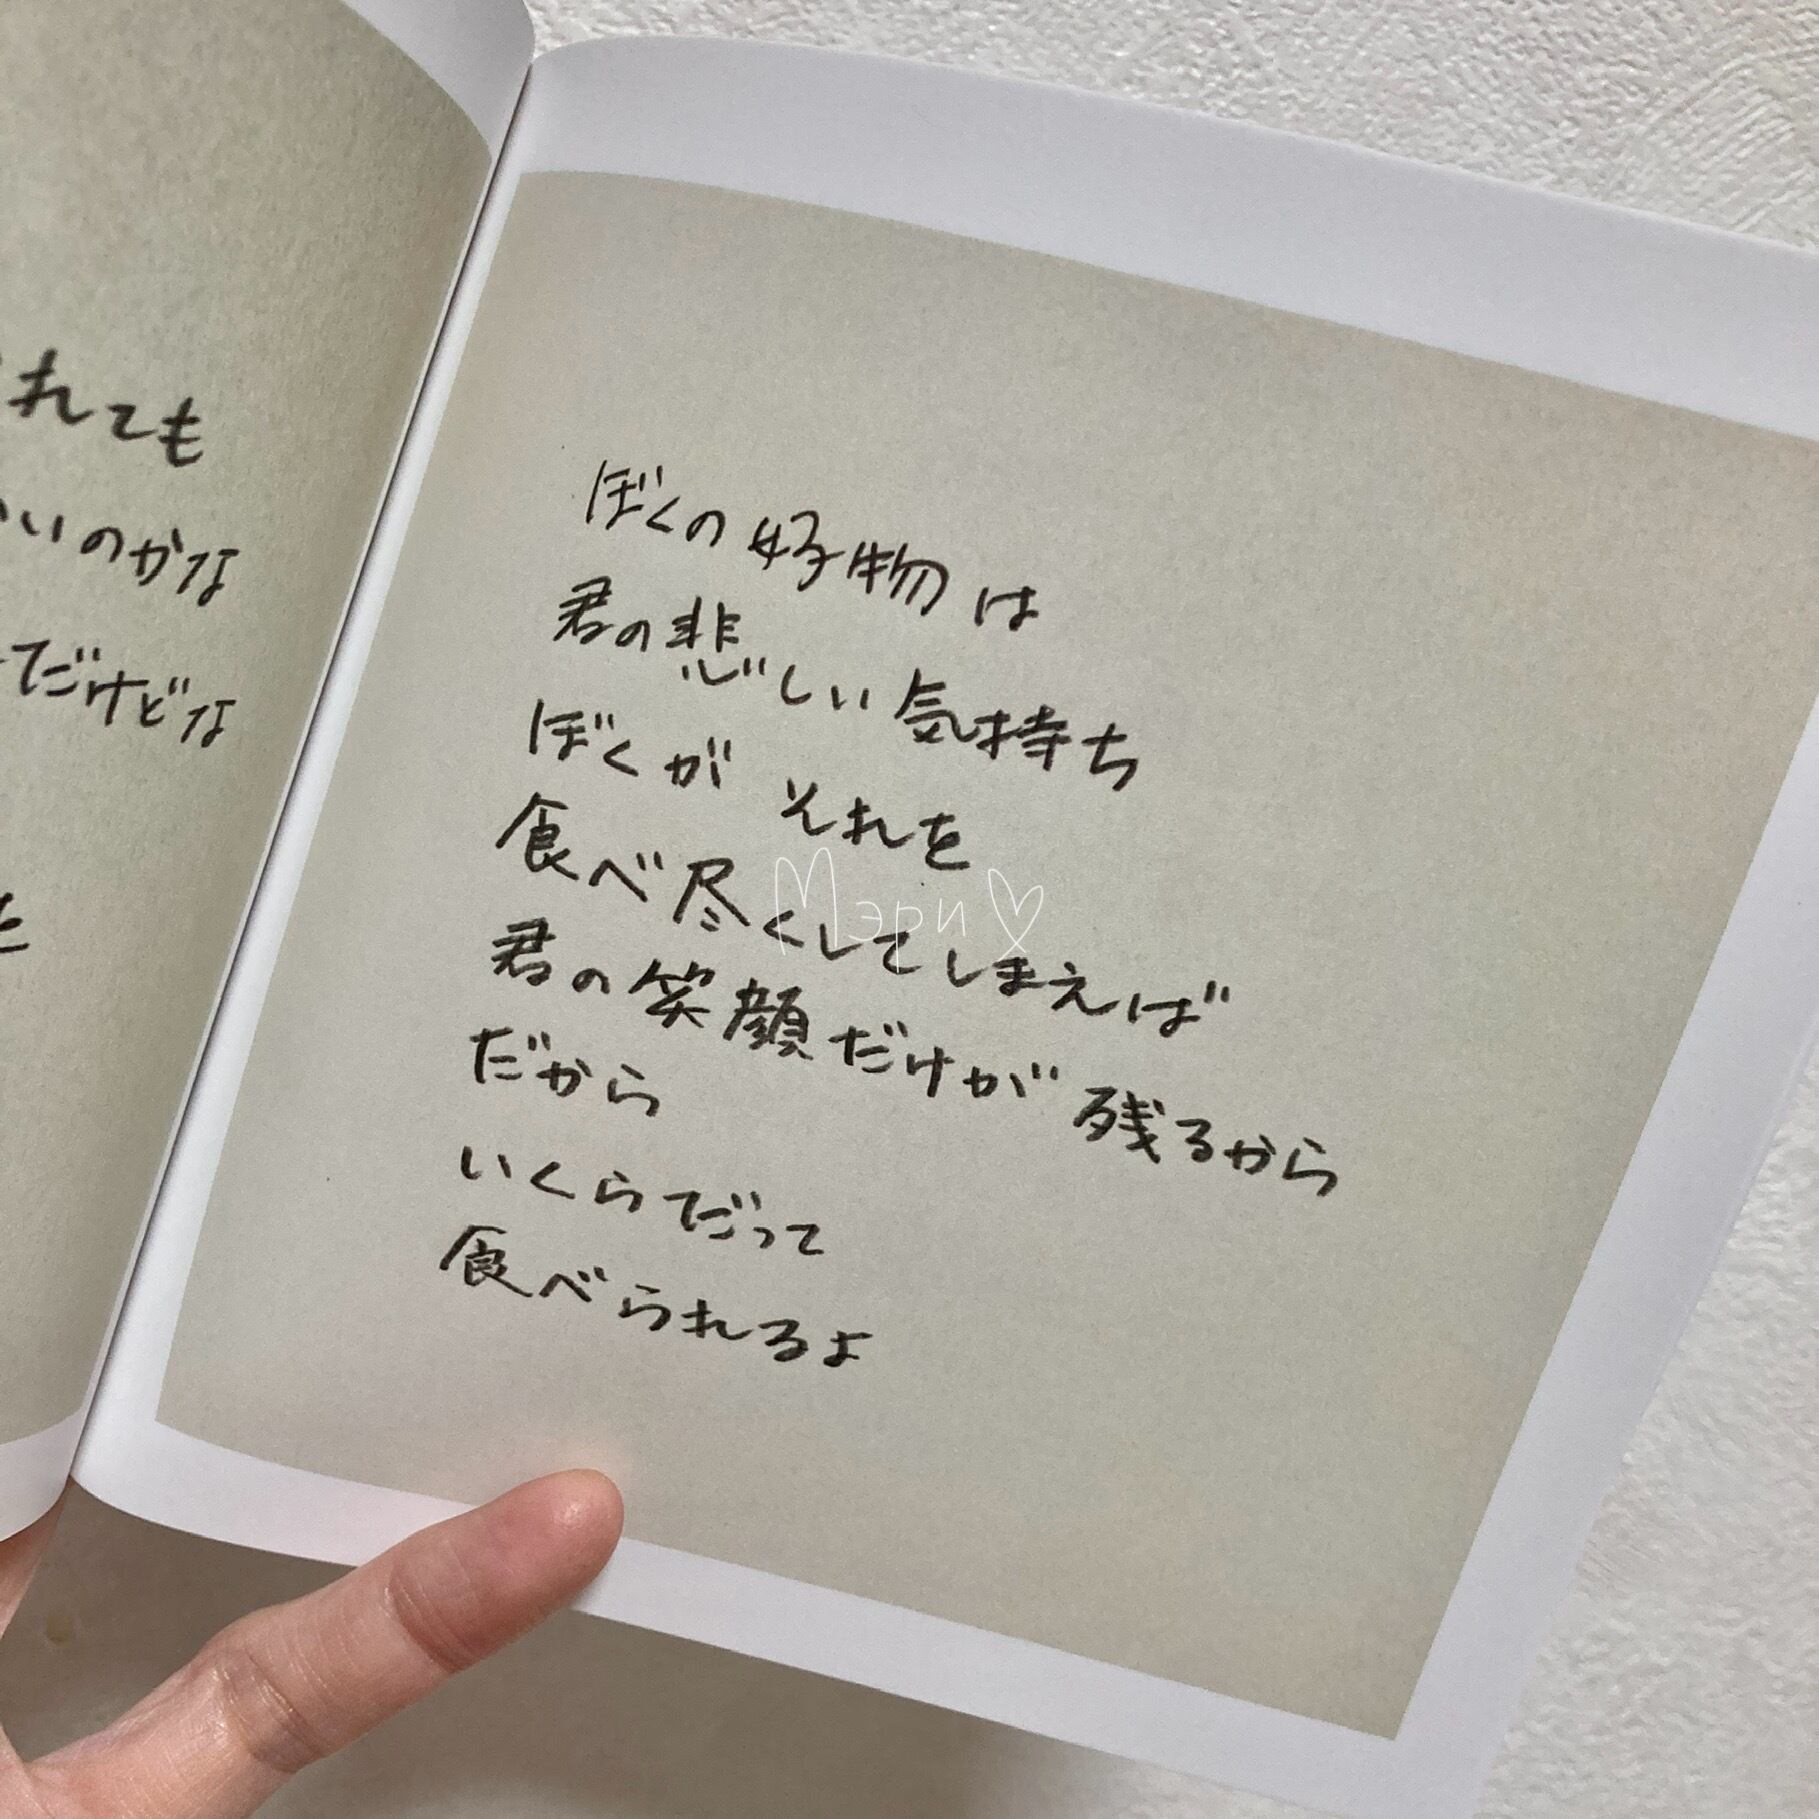 れても
いのかな
だけどな
を
ぼくの好物は
君の悲しい気持ち
ぼくが それを
食べ尽くしてしまえば
君の笑顔だけが 残るから
だから
いくらだって
食べられるよ
Мэри♡